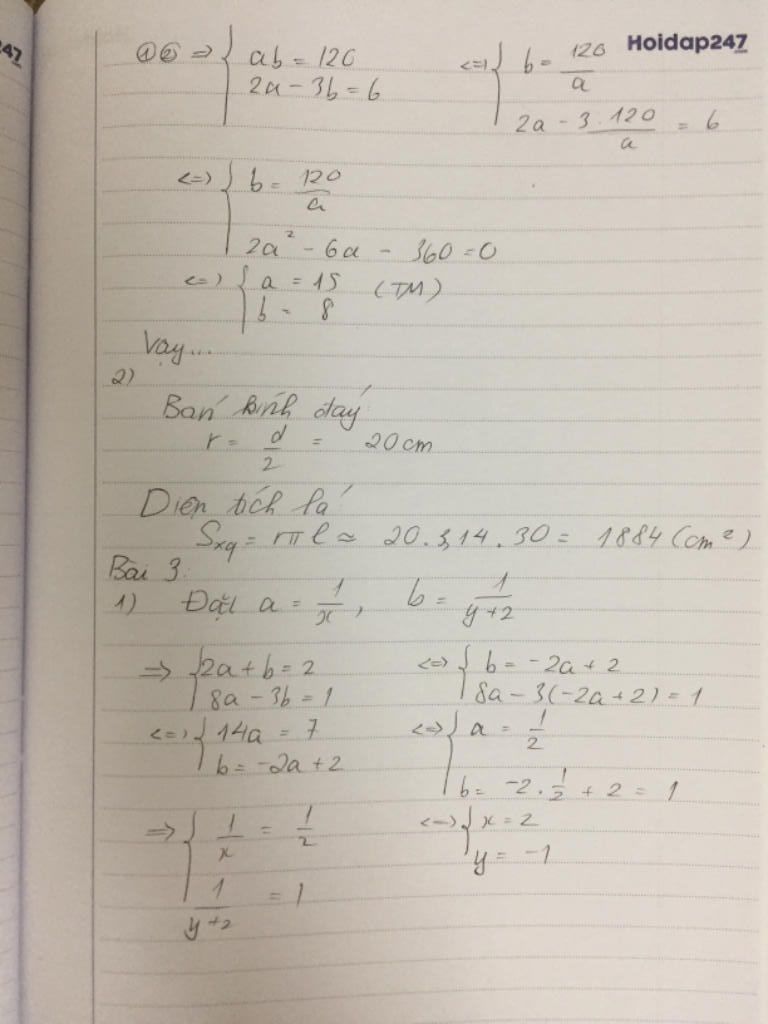 Hoidap247
①② => { ab = 120 <=> { b = 120/a
2a - 3b = 6 2a - 3.120/a = 6
<=> { b = 120/a
2a² - 6a - 360 = 0
<=> { a = 15 (TM)
b = 8
Vậy...
2)
Bán kính đáy
r = d/2 = 20cm
Diện tích lá
Sxq = rπl ≈ 20.3,14.30 = 1884 (cm²)
Bài 3:
1) Đặt a = 1/x, b = 1/y+2
=> { 2a + b = 2 <=> { b = -2a + 2
8a - 3b = 1 8a - 3(-2a + 2) = 1
<=> { 14a = 7 <=> { a = 1/2
b = -2a + 2 b = -2.1/2 + 2 = 1
=> { 1/x = 1/2 <=> { x = 2
1/y+2 = 1 y = -1